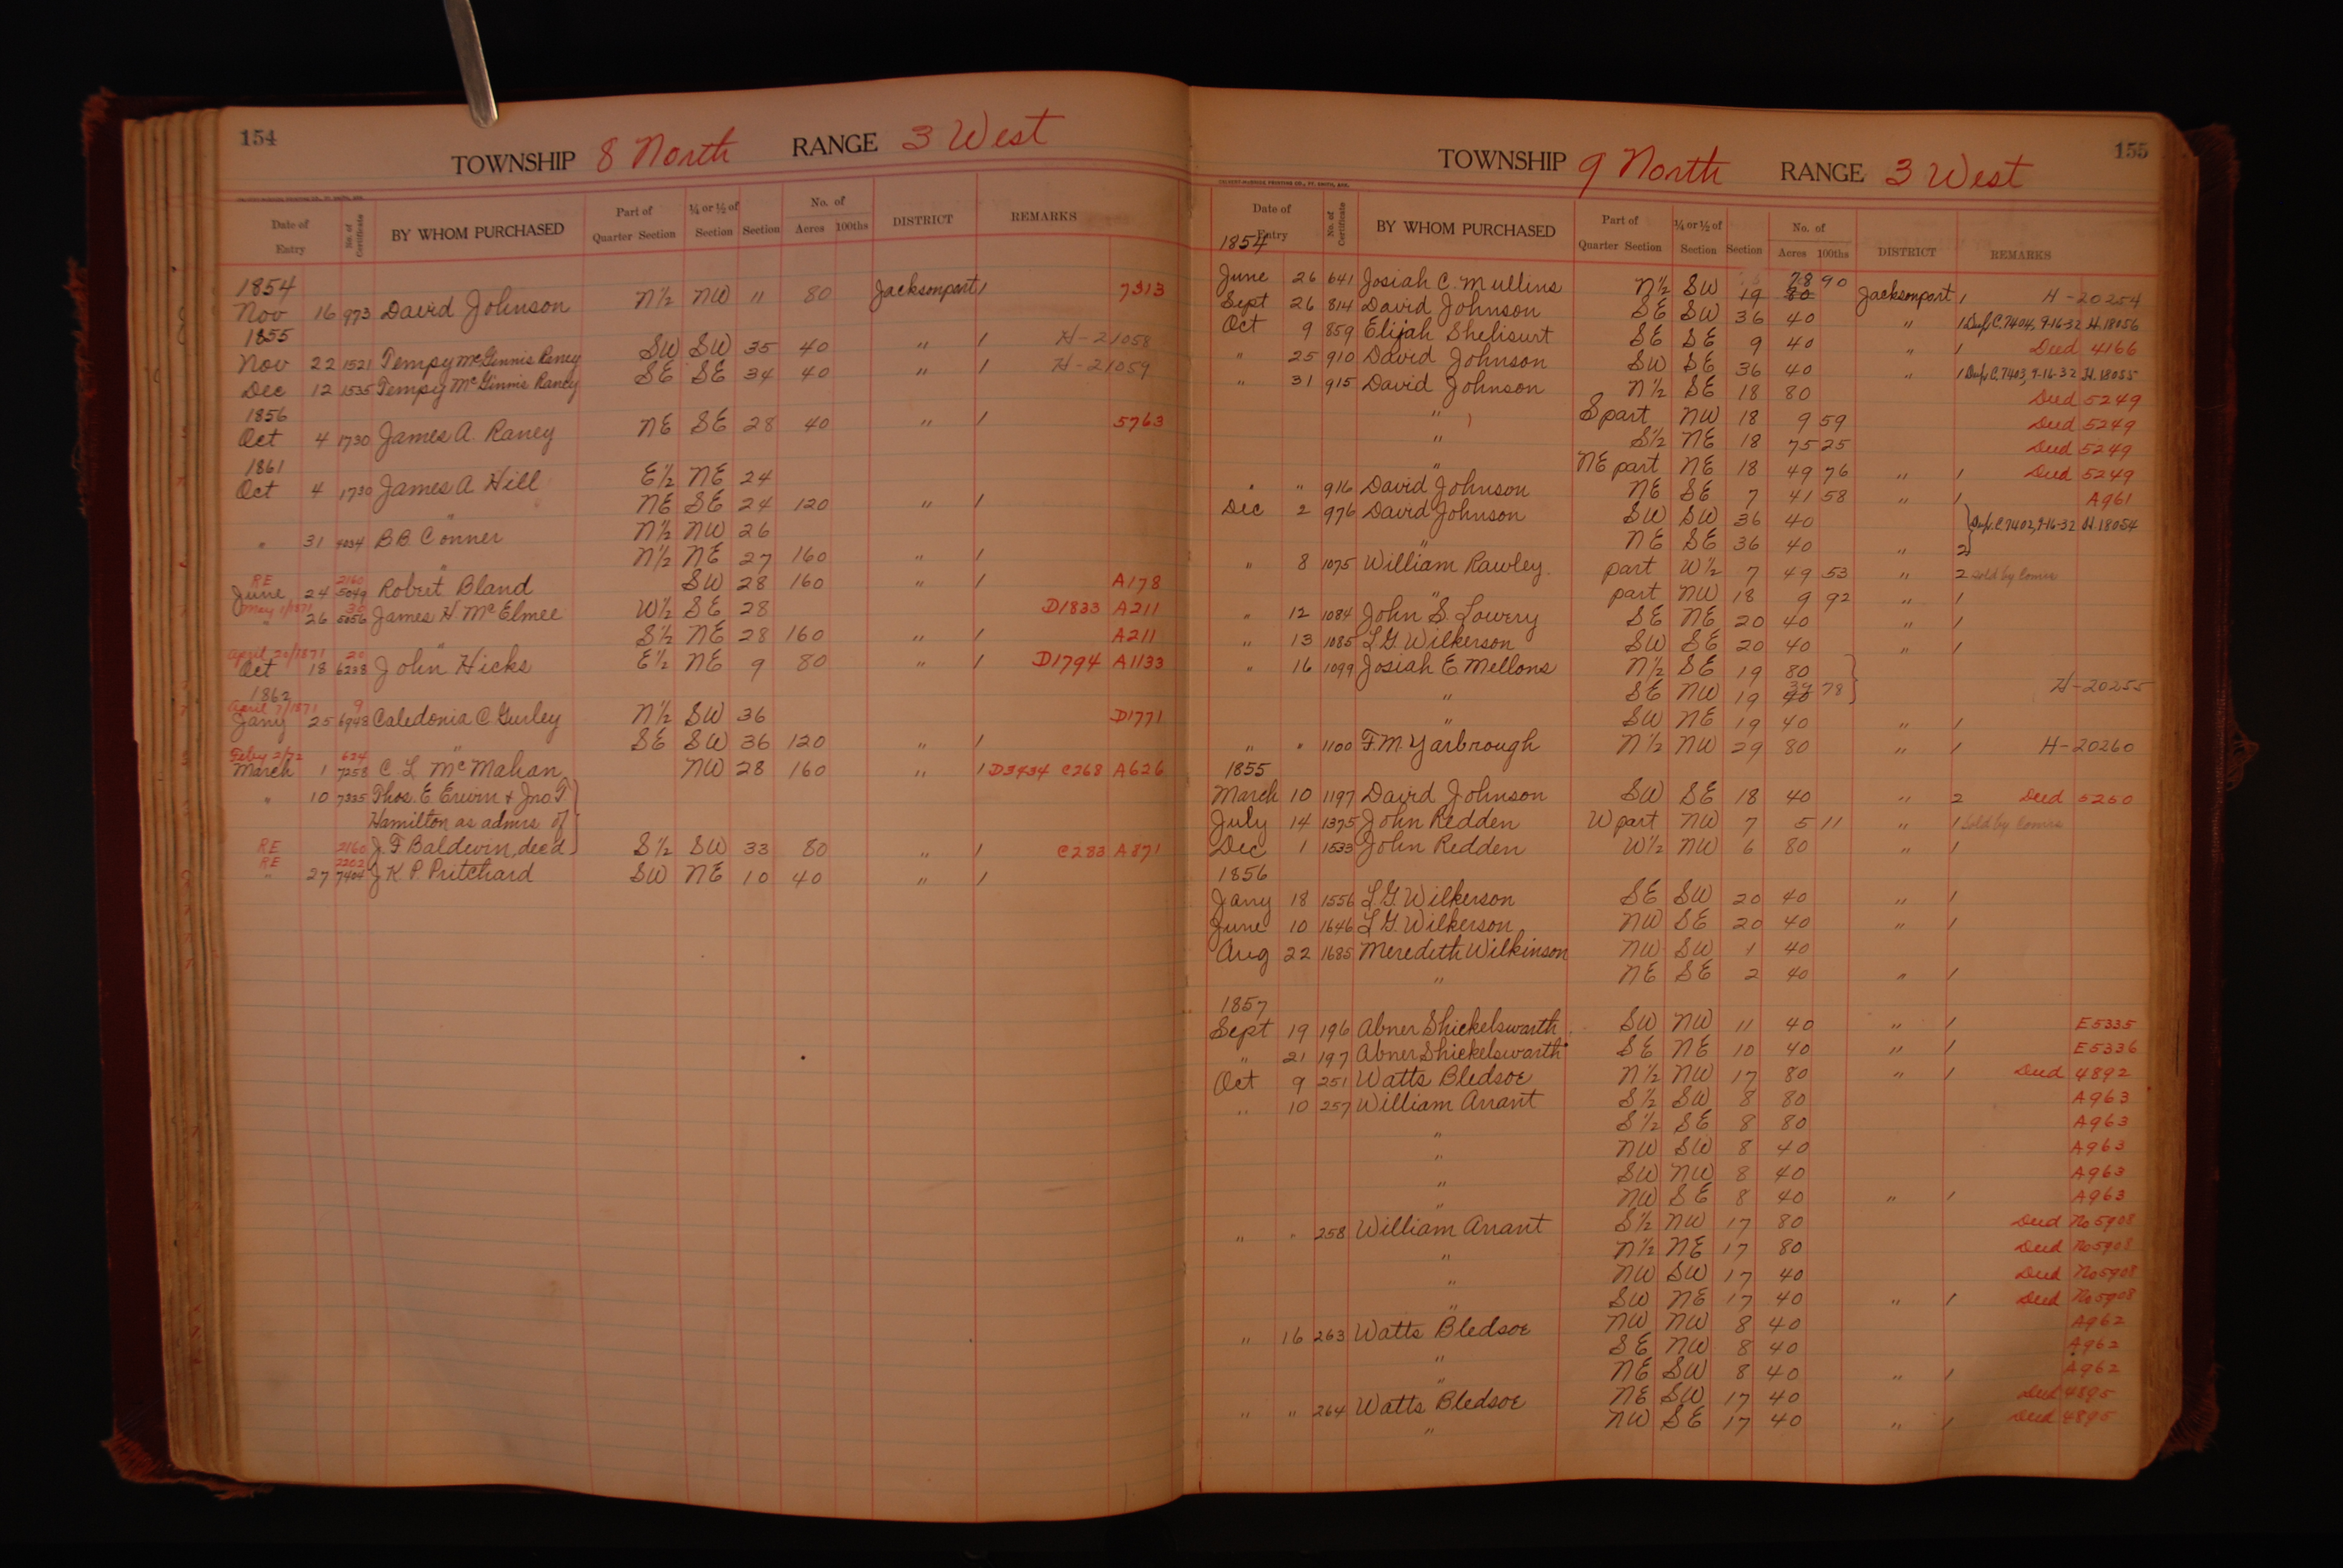 154
TOWNSHIP 8 North RANGE 3 West
Date of Entry No. of Certificate BY WHOM PURCHASED Part of Quarter Section ¼ or ½ of Section Section No. of Acres 100ths DISTRICT REMARKS
1854
Nov 16 973 David Johnson N½ NW 11 80 Jacksonport 1 7313
1855
Nov 22 1521 Tempy McGinnis Raney SW SW 35 40 " 1 H-21058
Dec 12 1535 Tempy McGinnis Raney SE SE 34 40 " 1 H-21059
1856
Oct 4 1730 James A. Raney NE SE 28 40 " 1 5763
1861
Oct 4 1730 James A Hill E½ NE 24
" NE SE 24 120 " 1
" 31 4034 B.B. Conner N½ NW 26
" N½ NE 27 160 " 1
RE 2160
June 24 5049 Robert Bland SW 28 160 " 1 A178
May 1/1871 30
" 26 5056 James H McElmee W½ SE 28 D1833 A211
" S½ NE 28 160 " 1 A211
April 20/1871 20
Oct 18 6238 John Hicks E½ NE 9 80 " 1 D1794 A1133
1862
April 7/1871 9
Jany 25 6948 Caledonia C Gurley N½ SW 36 D1771
" SE SW 36 120 " 1
Feby 2/72 624
March 1 7258 C L McMahan NW 28 160 " 1 D3434 C268 A626
" 10 7335 Thos. E. Erwin & Jno. T
Hamilton as admrs of
RE 2160 J. F Baldwin, decd S½ SW 33 80 " 1 C283 A871
RE 2202
" 27 7404 J K P. Pritchard SW NE 10 40 " 1
155
TOWNSHIP 9 North RANGE 3 West
Date of Entry No. of Certificate BY WHOM PURCHASED Part of Quarter Section ¼ or ½ of Section Section No. of Acres 100ths DISTRICT REMARKS
1854
June 26 641 Josiah C. Mullins N½ SW 19 80 78 90 Jacksonport 1 H-20254
Sept 26 814 David Johnson SE SW 36 40 " 1 Dup. C. 7404, 9-16-32 H.18056
Oct 9 859 Elijah Shelisurt SE SE 9 40 " 1 Deed 4166
" 25 910 David Johnson SW SE 36 40 " 1 Dup C. 7403, 9-16-32 H.18055
" 31 915 David Johnson N½ SE 18 80 Deed 5249
" S part NW 18 9 59 Deed 5249
" S½ NE 18 75 25 Deed 5249
" NE part NE 18 49 76 " 1 Deed 5249
" " 916 David Johnson NE SE 7 41 58 " 1 A961
Dec 2 976 David Johnson SW SW 36 40
" NE SE 36 40 " 2 Dup. C. 7402, 9-16-32 H.18054
" 8 1075 William Rawley. part W½ 7 49 53 " 2 sold by
" part NW 18 9 92 " 1
" 12 1084 John S. Lowery SE NE 20 40 " 1
" 13 1085 L.G. Wilkerson SW SE 20 40 " 1
" 16 1099 Josiah E Mellons N½ SE 19 80
" SE NW 19 40 39 78 H-20255
" SW NE 19 40 " 1
" " 1100 F.M. Yarbrough N½ NW 29 80 " 1 H-20260
1855
March 10 1197 David Johnson SW SE 18 40 " 2 Deed 5250
July 14 1375 John Redden W part NW 7 5 11 " 1 Sold by
Dec 1 1533 John Redden W½ NW 6 80 " 1
1856
Jany 18 1556 L.G. Wilkerson SE SW 20 40 " 1
June 10 1646 L G. Wilkerson NW SE 20 40 " 1
Aug 22 1685 Meredith Wilkinson NW SW 1 40
" NE SE 2 40 " 1
1857
Sept 19 196 Abner Shickelswarth SW NW 11 40 " 1 E5335
" 21 197 Abner Shickelswarth SE NE 10 40 " 1 E5336
Oct 9 251 Watts Bledsoe N½ NW 17 80 " 1 Deed 4892
" 10 257 William Arrant S½ SW 8 80 A963
" S½ SE 8 80 A963
" NW SW 8 40 A963
" SW NW 8 40 A963
" NW SE 8 40 " 1 A963
" " 258 William Arrant S½ NW 17 80 Deed No 5908
" N½ NE 17 80 Deed No 5908
" NW SW 17 40 Deed No 5908
" SW NE 17 40 " 1 Deed No 5908
" 16 263 Watts Bledsoe NW NW 8 40 A962
" SE NW 8 40 A962
" NE SW 8 40 " 1 A962
" " 264 Watts Bledsoe NE SW 17 40 Deed 4895
" NW SE 17 40 " 1 Deed 4895